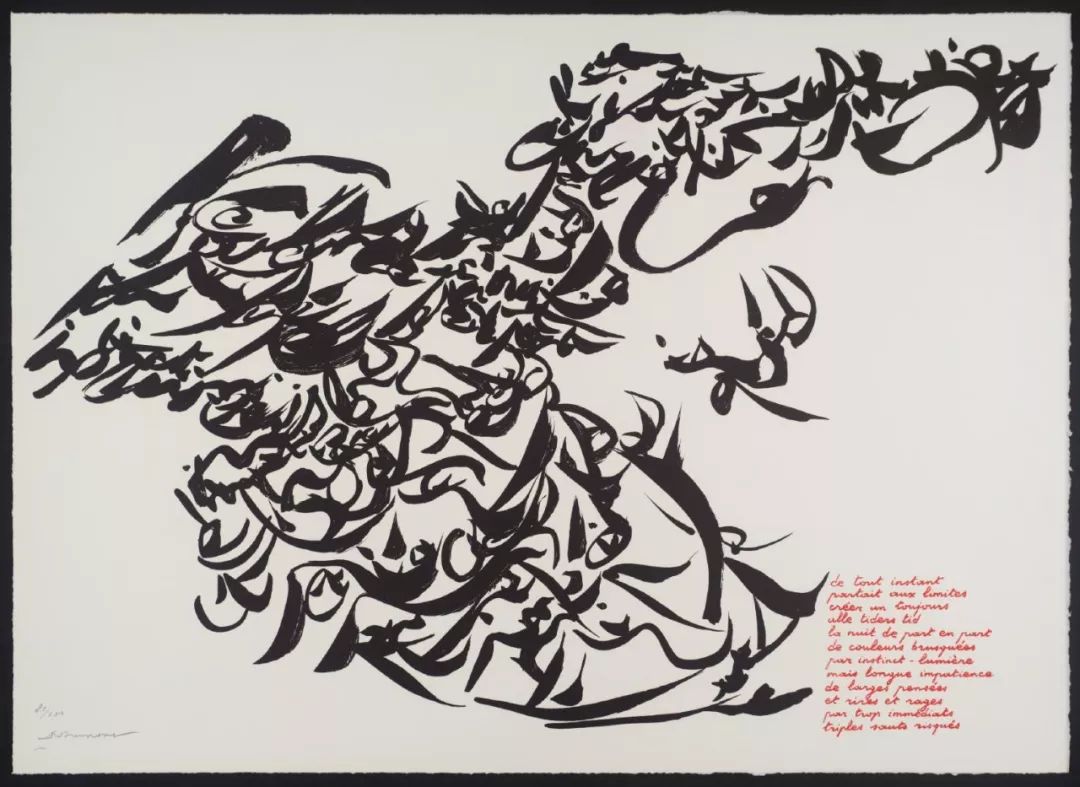 de tout instant
partait aux limites
créer un toujours
ulle tiders tid
la nuit de part en part
de couleurs brusquées
par instinct-lumière
mais longue impatience
de larges pensées
et rires et rages
par trop immédiats
triples sauts risqués